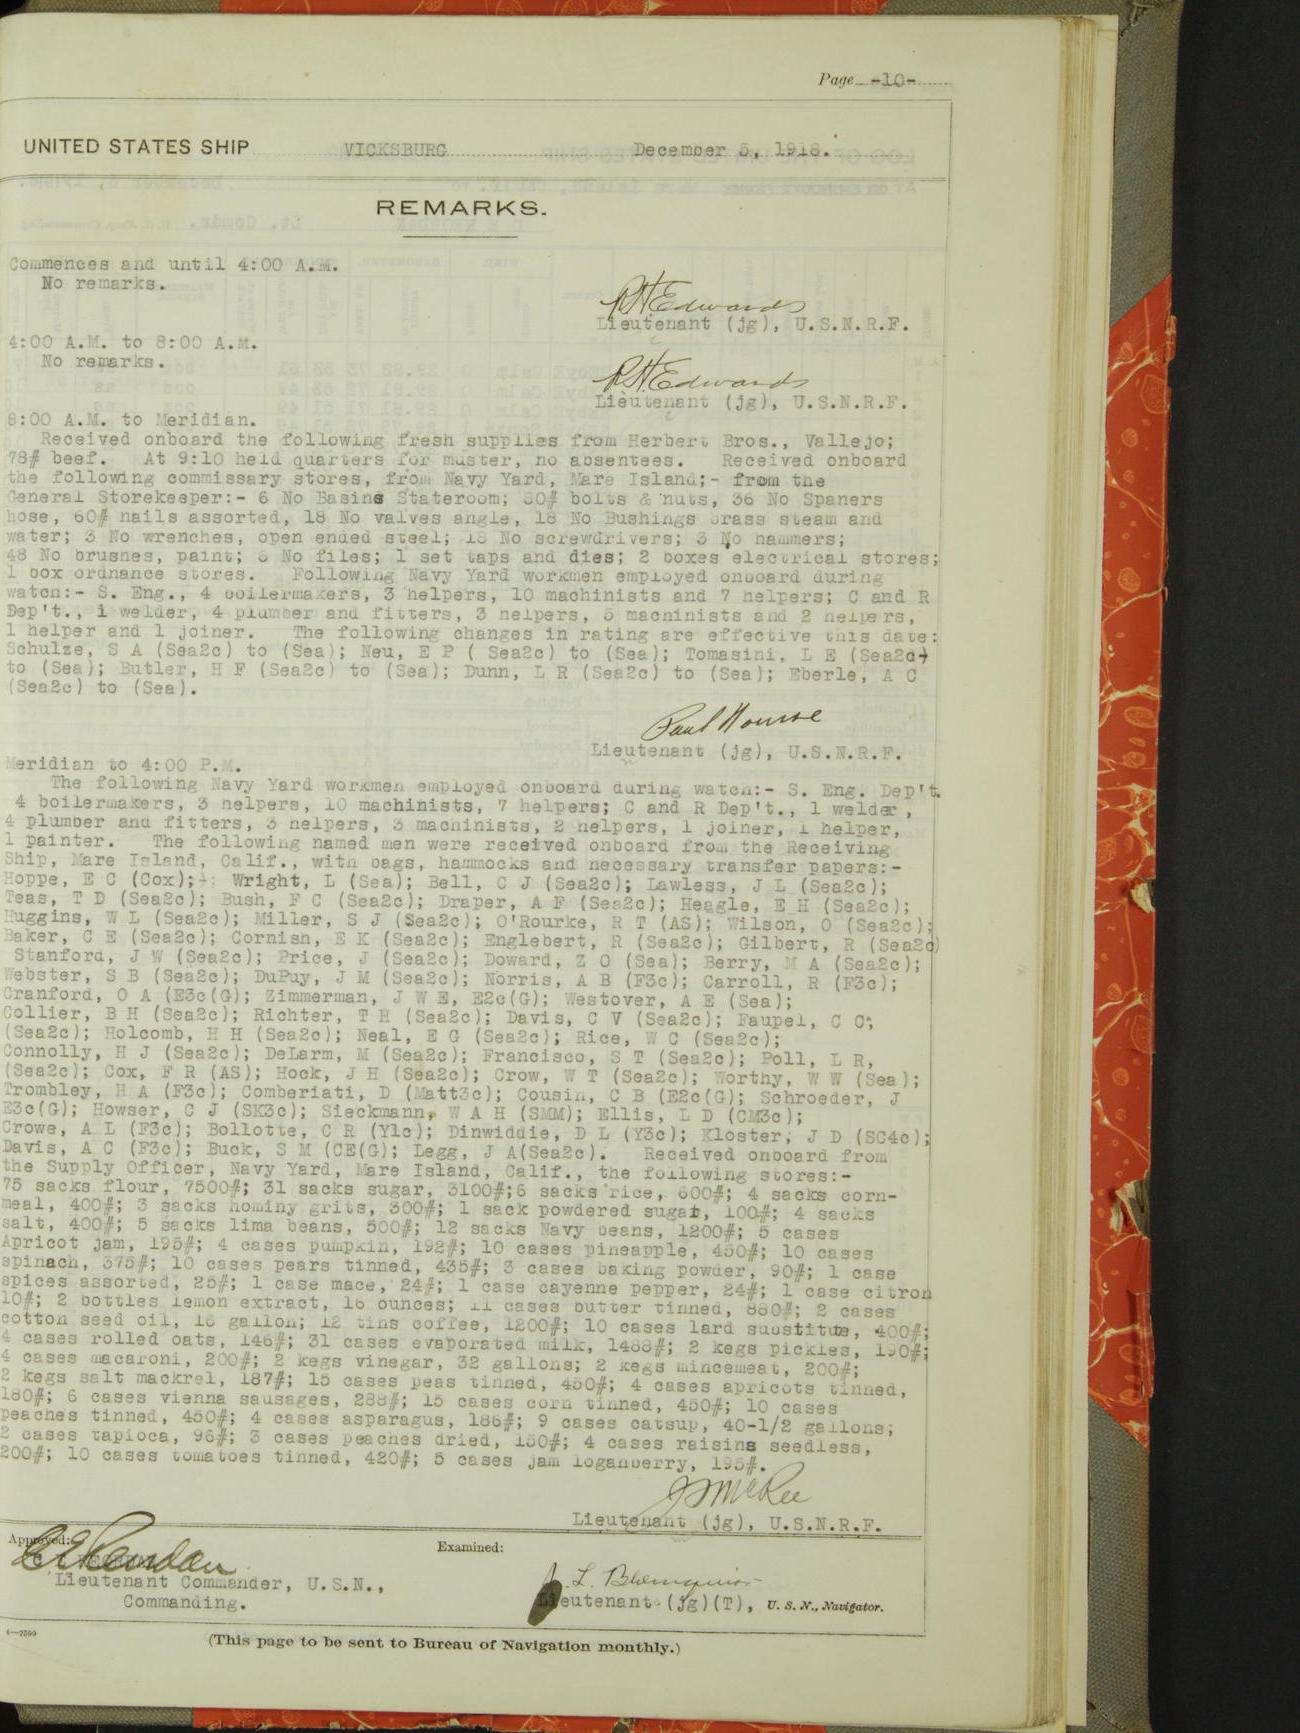 Page -10-
UNITED STATES SHIP VICKSBURG December 5, 1918.
REMARKS.
Commences and until 4:00 A.M.
No remarks.
R H Edwards
Lieutenant (jg), U.S.N.R.F.
4:00 A.M. to 8:00 A.M.
No remarks.
R H Edwards
Lieutenant (jg), U.S.N.R.F.
8:00 A.M. to Meridian.
Received onboard the following fresh supplies from Herbert Bros., Vallejo;
78# beef. At 9:10 held quarters for muster, no absentees. Received onboard
the following commissary stores, from Navy Yard, Mare Island;- from the
General Storekeeper:- 6 No Basins Stateroom; 50# bolts & nuts, 36 No Spaners
hose, 60# nails assorted, 18 No valves angle, 18 No Bushings brass steam and
water; 3 No wrenches, open ended steel; 18 No screwdrivers; 3 No hammers;
48 No brushes, paint; 6 No files; 1 set taps and dies; 2 boxes electrical stores;
1 box ordnance stores. Following Navy Yard workmen employed onboard during
watch:- S. Eng., 4 boilermakers, 3 helpers, 10 machinists and 7 helpers; C and R
Dep't., 1 welder, 4 plumber and fitters, 3 helpers, 5 machinists and 2 helpers,
1 helper and 1 joiner. The following changes in rating are effective this date:
Schulze, S A (Sea2c) to (Sea); Neu, E P ( Sea2c) to (Sea); Tomasini, L E (Sea2c)
to (Sea); Butler, H F (Sea2c) to (Sea); Dunn, L R (Sea2c) to (Sea); Eberle, A C
(Sea2c) to (Sea).
Paul Nourse
Lieutenant (jg), U.S.N.R.F.
Meridian to 4:00 P.M.
The following Navy Yard workmen employed onboard during watch:- S. Eng. Dep't.
4 boilermakers, 3 helpers, 10 machinists, 7 helpers; C and R Dep't., 1 welder,
4 plumber and fitters, 3 helpers, 3 machinists, 2 helpers, 1 joiner, 1 helper,
1 painter. The following named men were received onboard from the Receiving
Ship, Mare Island, Calif., with bags, hammocks and necessary transfer papers:-
Hoppe, E C (Cox); Wright, L (Sea); Bell, C J (Sea2c); Lawless, J L (Sea2c);
Teas, T D (Sea2c); Bush, F C (Sea2c); Draper, A F (Sea2c); Heagle, E H (Sea2c);
Huggins, W L (Sea2c); Miller, S J (Sea2c); O'Rourke, R T (AS); Wilson, O (Sea2c);
Baker, C E (Sea2c); Cornish, E K (Sea2c); Englebert, R (Sea2c); Gilbert, R (Sea2c)
Stanford, J W (Sea2c); Price, J (Sea2c); Doward, Z O (Sea); Berry, M A (Sea2c);
Webster, S B (Sea2c); DuPuy, J M (Sea2c); Norris, A B (F3c); Carroll, R (F3c);
Cranford, O A (E3c(G); Zimmerman, J W E, E2c(G); Westover, A E (Sea);
Collier, B H (Sea2c); Richter, T H (Sea2c); Davis, C V (Sea2c); Faupel, C C,
(Sea2c); Holcomb, H H (Sea2c); Neal, E G (Sea2c); Rice, W C (Sea2c);
Connolly, H J (Sea2c); DeLarm, M (Sea2c); Francisco, S T (Sea2c); Poll, L R,
(Sea2c); Cox, F R (AS); Hock, J H (Sea2c); Crow, W T (Sea2c); Worthy, W W (Sea);
Trombley, H A (F3c); Comberiati, D (Matt3c); Cousin, C B (E2c(G); Schroeder, J
E3c(G); Howser, C J (SK3c); Sieckmann, W A H (SMM); Ellis, L D (CM3c);
Crowe, A L (F3c); Bollotte, C R (Y1c); Dinwiddie, D L (Y3c); Kloster, J D (SC4c);
Davis, A C (F3c); Buck, S M (CE(G); Legg, J A(Sea2c). Received onboard from
the Supply Officer, Navy Yard, Mare Island, Calif., the following stores:-
75 sacks flour, 7500#; 31 sacks sugar, 3100#;6 sacks rice, 600#; 4 sacks corn-
meal, 400#; 3 sacks hominy grits, 300#; 1 sack powdered sugar, 100#; 4 sacks
salt, 400#; 5 sacks lima beans, 500#; 12 sacks Navy beans, 1200#; 5 cases
Apricot jam, 195#; 4 cases pumpkin, 192#; 10 cases pineapple, 450#; 10 cases
spinach, 375#; 10 cases pears tinned, 435#; 3 cases baking powder, 90#; 1 case
spices assorted, 25#; 1 case mace, 24#; 1 case cayenne pepper, 24#; 1 case citron
10#; 2 bottles lemon extract, 16 ounces; 11 cases butter tinned, 880#; 2 cases
cotton seed oil, 16 gallon; 12 tins coffee, 1200#; 10 cases lard substitute, 400#;
4 cases rolled oats, 146#; 31 cases evaporated milk, 1488#; 2 kegs pickles, 190#;
4 cases macaroni, 200#; 2 kegs vinegar, 32 gallons; 2 kegs mincemeat, 200#;
2 kegs salt mackrel, 187#; 15 cases peas tinned, 450#; 4 cases apricots tinned,
180#; 6 cases vienna sausages, 288#; 15 cases corn tinned, 450#; 10 cases
peaches tinned, 450#; 4 cases asparagus, 186#; 9 cases catsup, 40-1/2 gallons;
2 cases tapioca, 96#; 3 cases peaches dried, 150#; 4 cases raisins seedless,
200#; 10 cases tomatoes tinned, 420#; 5 cases jam loganberry, 195#.
J S McRee
Lieutenant (jg), U.S.N.R.F.
Approved: Examined:
Lieutenant Commander, U.S.N.,
Commanding.
Lieutenant (jg)(T), U. S. N., Navigator.
6—2599
(This page to be sent to Bureau of Navigation monthly.)